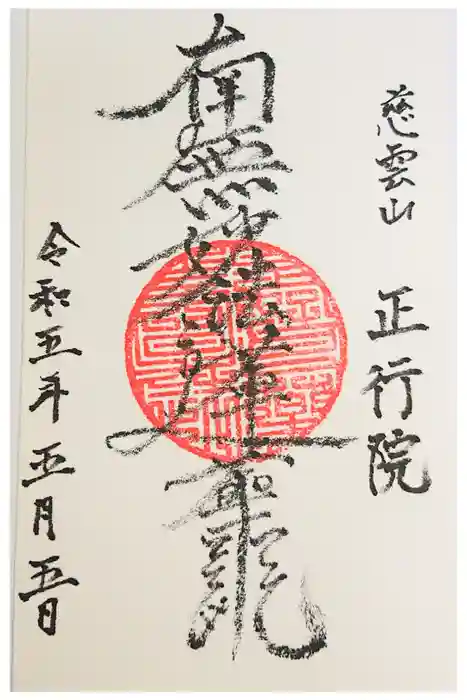 慈雲山 正行院
南無妙法蓮華
令和五年五月五日